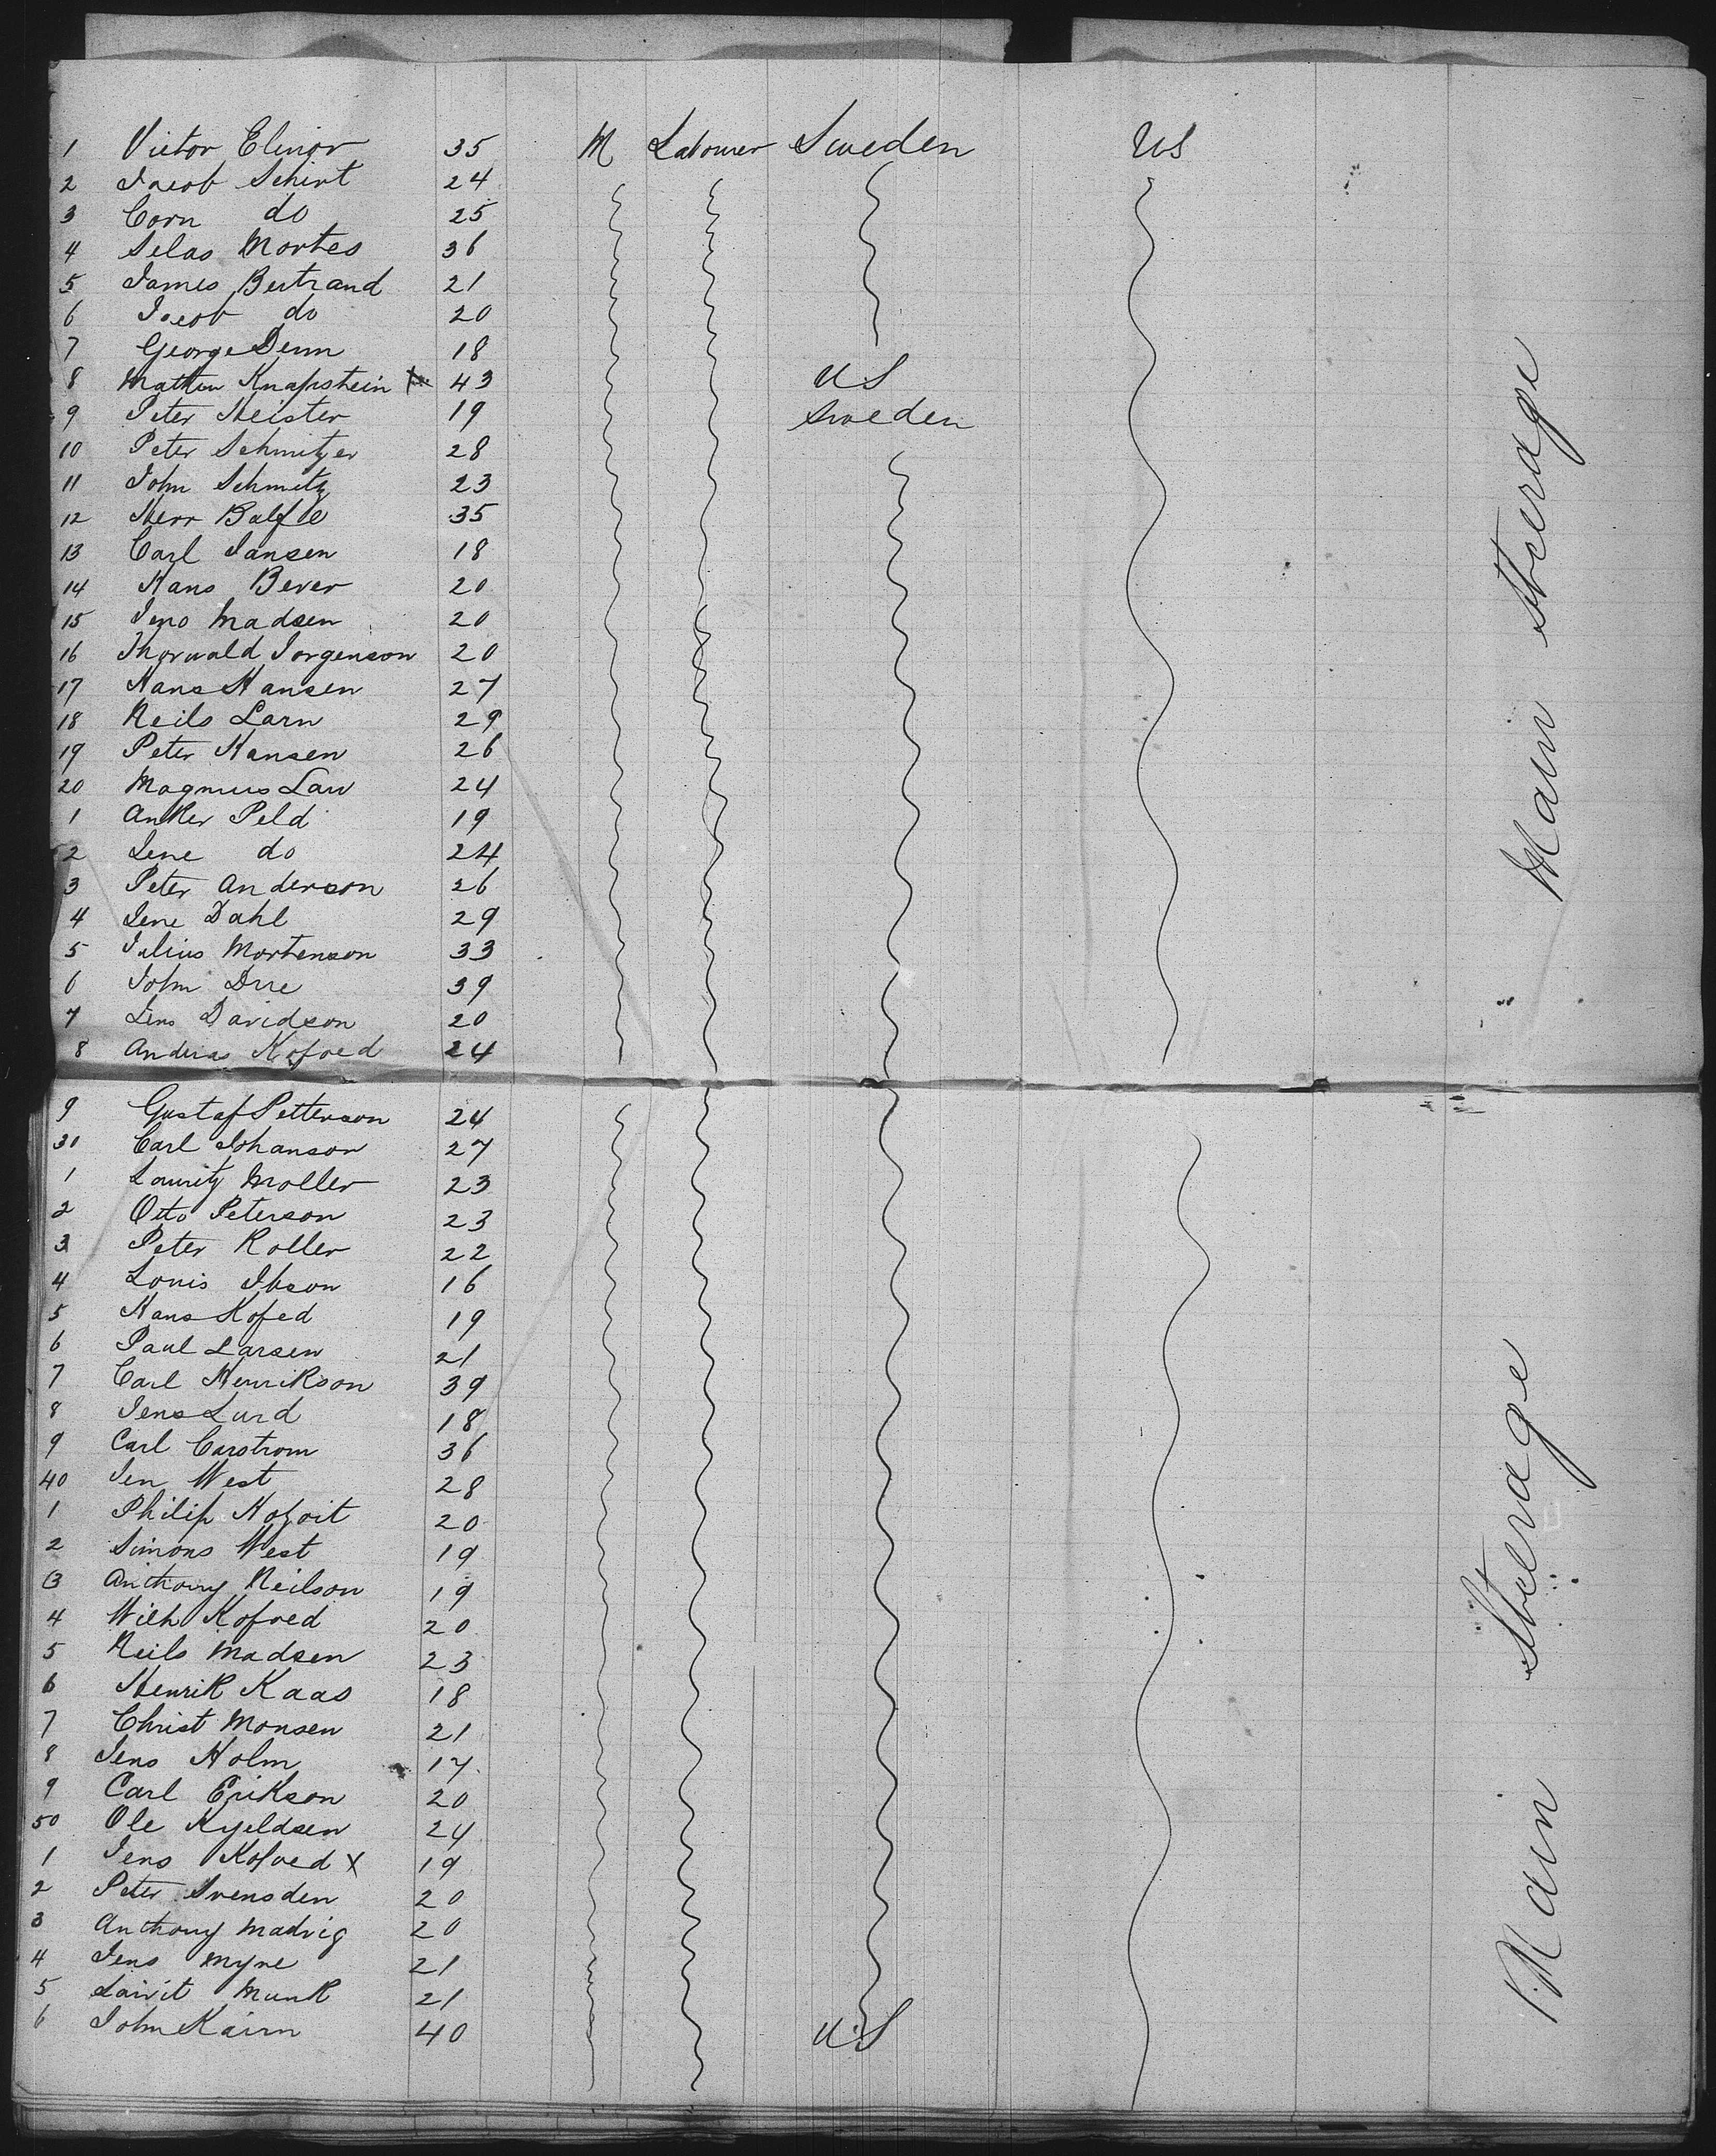 1 Victor Elinor 35 M Labourer Sweden US
2 Jacob Schirt 24
3 Corn do 25
4 Selas Mortes 36
5 James Bertrand 21
6 Jacob do 20
7 George Denn 18
8 Mathew Knapstein X 43 US
9 Peter Heister 19 Sweden
10 Peter Schmitzer 28
11 John Schmitz 23
12 Herr 35
13 Carl Jansen 18
14 Hans Bever 20
15 Jens Madsen 20
16 Thorwald Jorgenson 20
17 Hans Hansen 27
18 Neils Larn 29
19 Peter Hansen 26
20 Magnus Lau 24
1 Anker Peld 19
2 Lene do 24
3 Peter Anderson 26
4 Lene Dahl 29
5 Julius Mortenson 33
6 John 39
7 Jens Davidson 20
8 Andras Kofoed 24
Main Steerage
9 Gustaf Petterson 24
31 Carl Johanson 27
1 Lauritz Moller 23
2 Otto Peterson 23
3 Peter Koller 22
4 Louis Ibson 16
5 Hans Kofed 19
6 Paul Larsen 21
7 Carl Henrikson 39
8 Jens Lurd 18
9 Carl Carstrom 36
40 Jen West 28
1 Philip 20
2 Simons West 19
3 Anthony Neilson 19
4 Wilh Kofoed 20
5 Neils Madsen 23
6 Henrik Kaas 18
7 Christ Monsen 21
8 Jens Holm 17
9 Carl Erikson 20
50 Ole Kyeldsen 24
1 Jens Kofoed X 19
2 Peter Svensden 20
3 Anthony Madvig 20
4 Jens Myre 21
5 Munk 21
6 John Kairn 40 US
Main Steerage